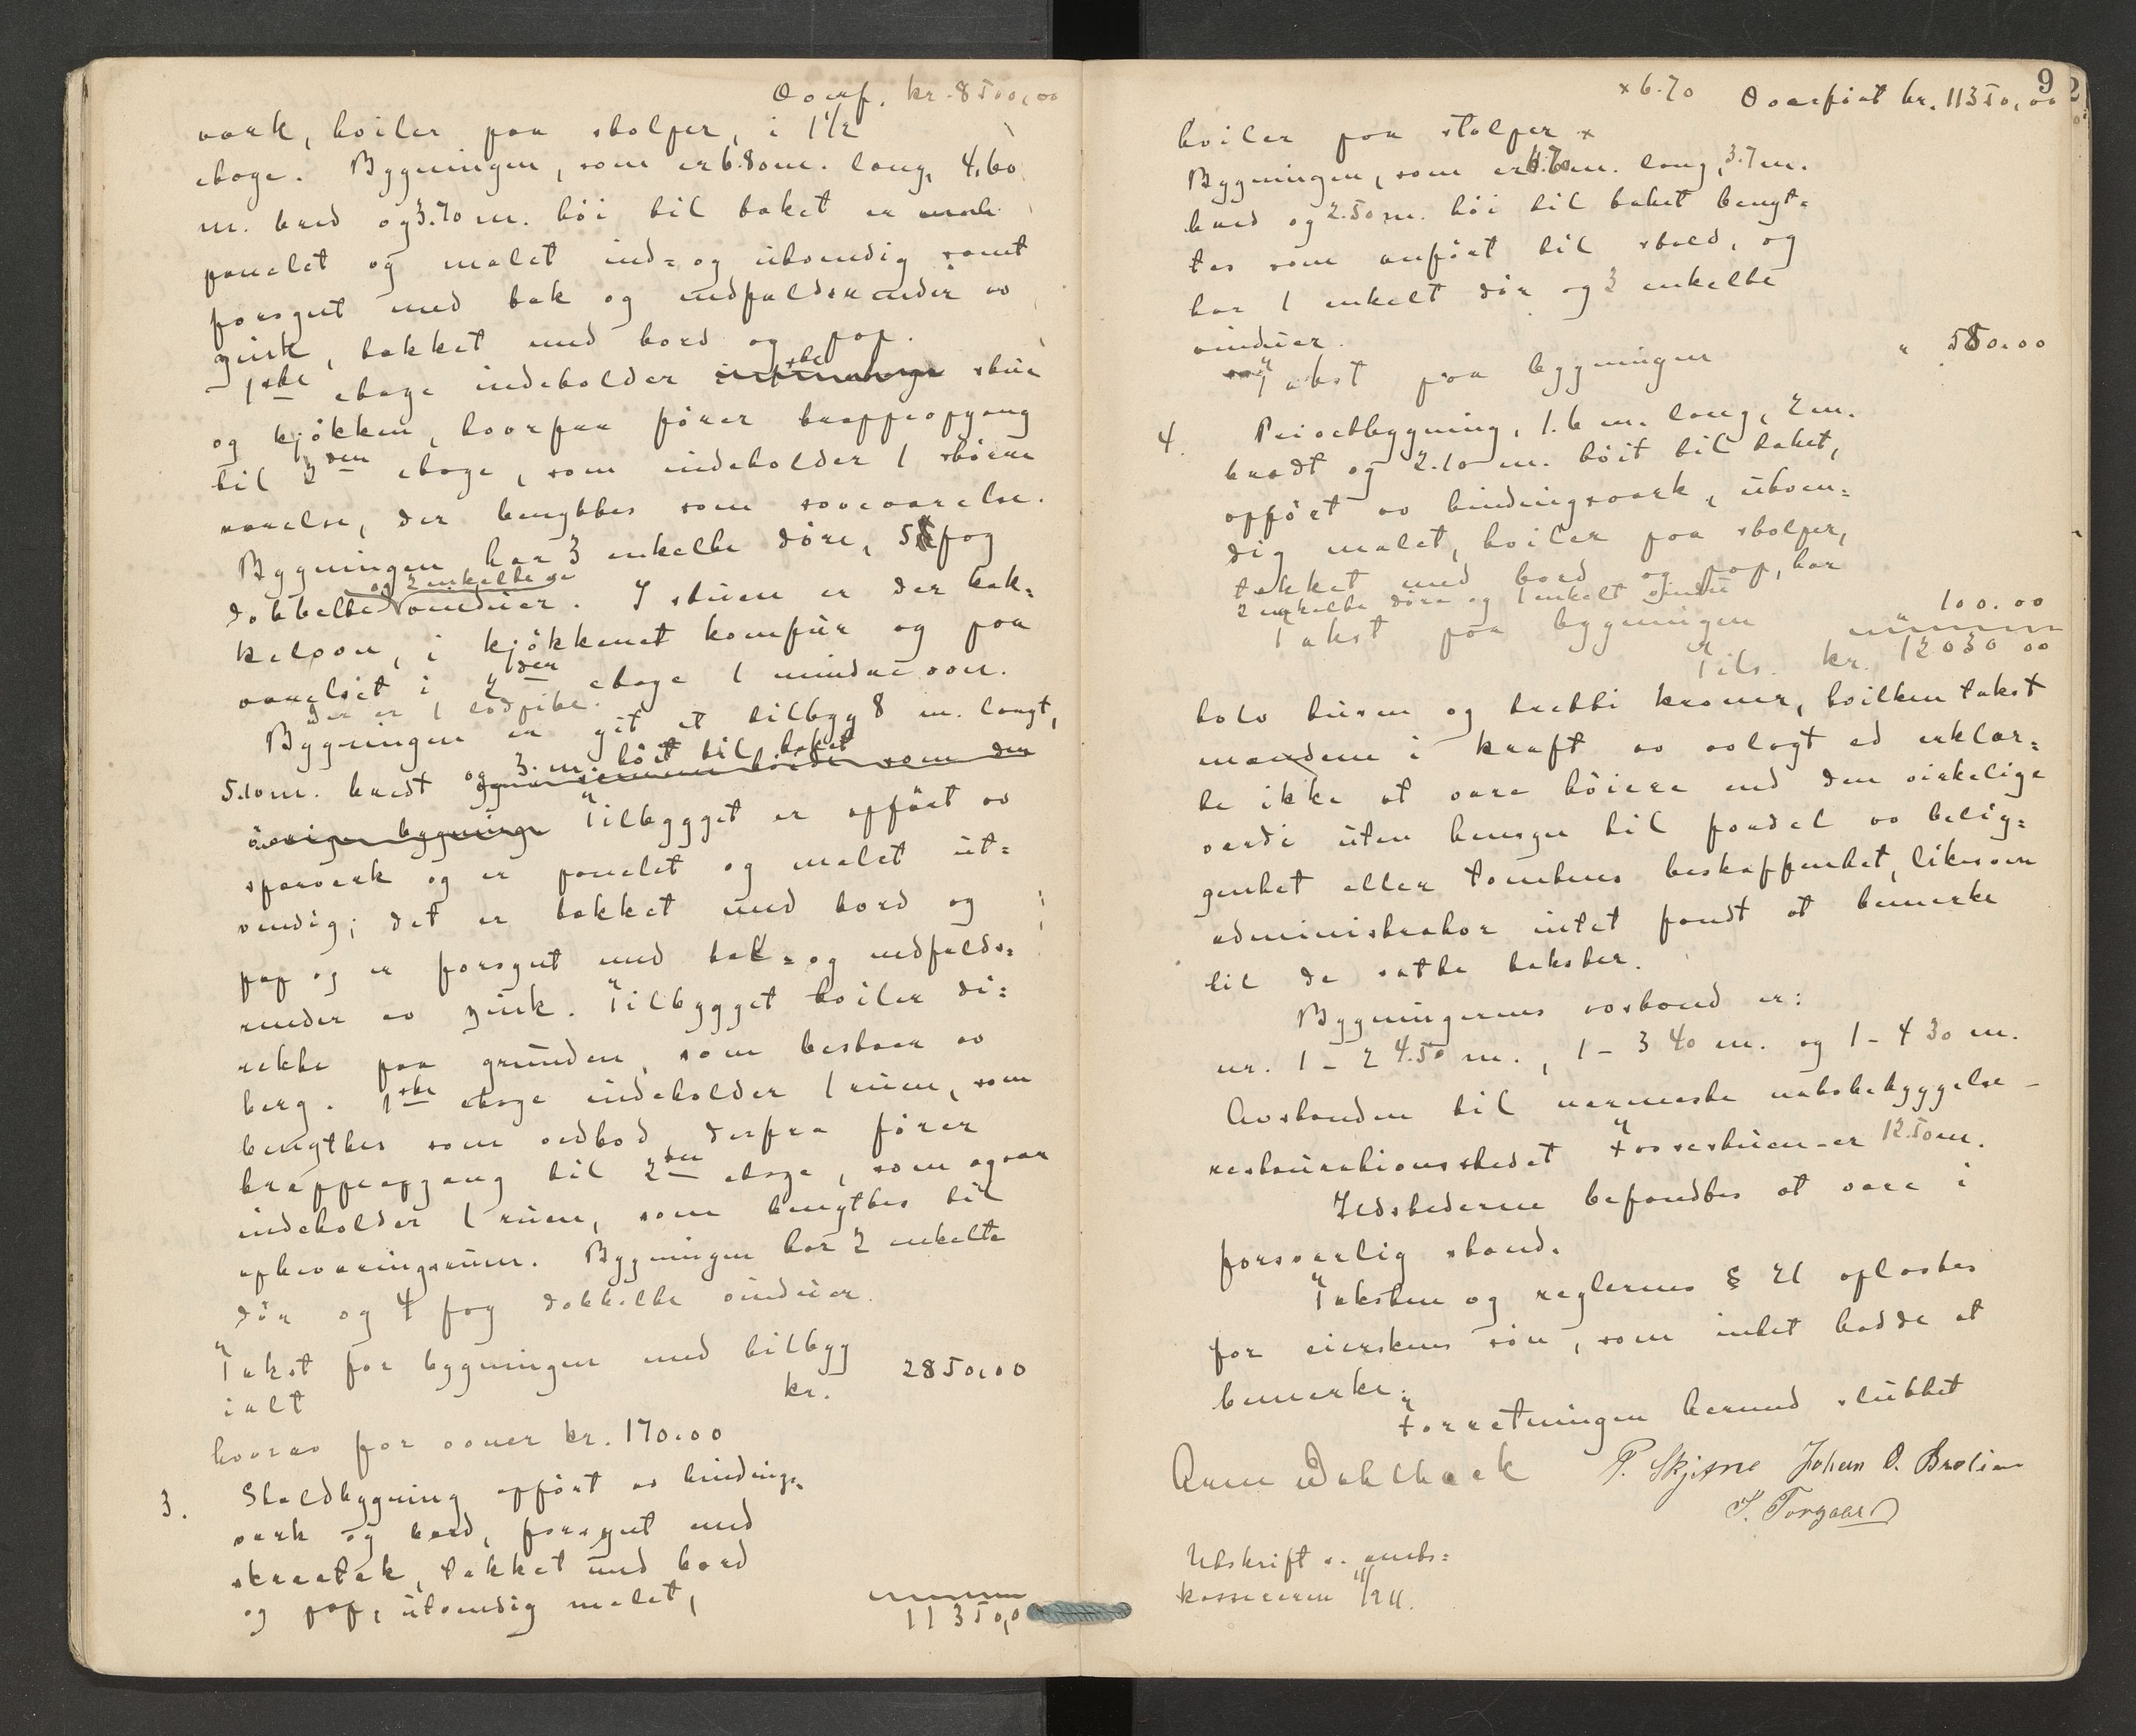 Overf. kr. 8500,00
værk, hviler paa stolper, i 1½
etage. Bygningen, som er 6.80 m. lang, 4,60
m. bred og 3.70 m. høi til taket er
panelet og malet ind= og utvendig samt
forsynt med tak og nedfaldsrender av
zink, tækket med bord og pap.
1ste etage indeholder stue
og kjøkken, hvorfra fører trappeopgang
til 2den etage, som indeholder 1 større
værelse, der benyttes som soveværelse.
Bygningen har 3 enkelte døre, 5 fag
og 2 enkelte
dobbelte vinduer. I stuen er der kak=
kelovn, i kjøkkenet komfur og paa
værelset i 2den etage 1 mindre ovn.
Der er 1 lodpibe.
Bygningen er git et tilbyg 8 m. langt,
og 3. m. høit til taket
5.10 m. bredt og av samme høide som den
øvrige bygning. Tilbygget er opført av
sperverk og er panelet og malet ut=
vendig; det er tækket med bord og
pap og er forsynt med tak= og nedfalds=
render av zink. Tilbygget hviler di=
rekte paa grunden, som bestaar av
berg. 1ste etage indeholder 1 rum, som
benyttes som vedbod, derfra fører
trappeopgang til 2den etage, som ogsaa
indeholder 1 rum, som benyttes til
opbevaringsrum. Bygningen har 2 enkelte
dør og 4 fag dobbelte vinduer.
Takst for bygningen med tilbyg
ialt kr. 2850,00
hvorav for ovner kr. 170.00
3. Staldbygning opført av bindings=
verk og bord, forsynt med
skraatak, tækket med bord
og pap, utvendig malet,
11350,0
9
x 6.70 Overført kr. 11350,00
hviler paa stolper x
Bygningen, som er 6.70 m. lang, 3.7 m.
bred og 2.50 m. høi til taket benyt=
tes som anført til stald, og
har 1 enkelt dør og 3 enkelte
vinduer.
Takst paa bygningen " 580.00
4. Privetbygning, 1.6 m. lang, 2 m.
bredt og 2.10 m. høit til taket,
opført av bindingsverk, utven=
dig malet, hviler paa stolper,
tækket med bord og pap, har
2 enkelte døre og 1 enkelt vindu
Takst paa bygningen " 100.00
Tils. kr. 12030 00
tolv tusen og tretti kroner, hvilken takst
mændene i kraft av avlagt ed erklær=
te ikke at være høiere end den virkelige
værdi uten hensyn til fordel av belig=
genhet eller tomtens beskaffenhet, likesom
administrator intet fandt at bemerke
til de satte takster.
Bygningernes avstand er:
nr. 1 - 2 4.50 m., 1 - 3 40 m. og 1 - 4 30 m.
Avstanden til nærmeste nabobebyggelse -
restaurationsstedet Fossestuen - er 12.50 m.
Ildstederne befandtes at være i
forsvarlig stand.
Taksten og reglernes § 21 oplæstes
for eierskens søn, som intet hadde at
bemerke.
Forretningen hermed sluttet
Arne Dahlback P. Skjefne Johan O. Brolin
T. Torgaard
Utskrift s. amts=
kassereren 11/9 11.